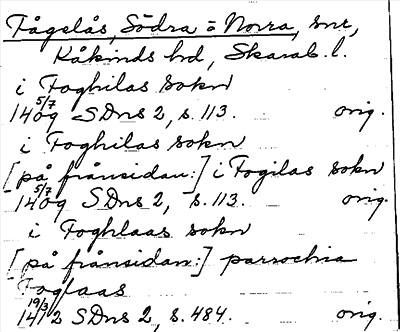 Fågelås, Södra = Norra, snr,
Kåkinds hd, Skarab. l.
i Foghilas sokn
5/7 1409 SDns 2, s. 113. orig.
i Foghilas sokn
[på frånsidan:] i Fogilas sokn
5/7 1409 SDns 2, s. 113. orig.
i Foghlaas sokn
[på frånsidan:] parrochia
Foglaas
19/3 1412 SDns 2, s. 484. orig.